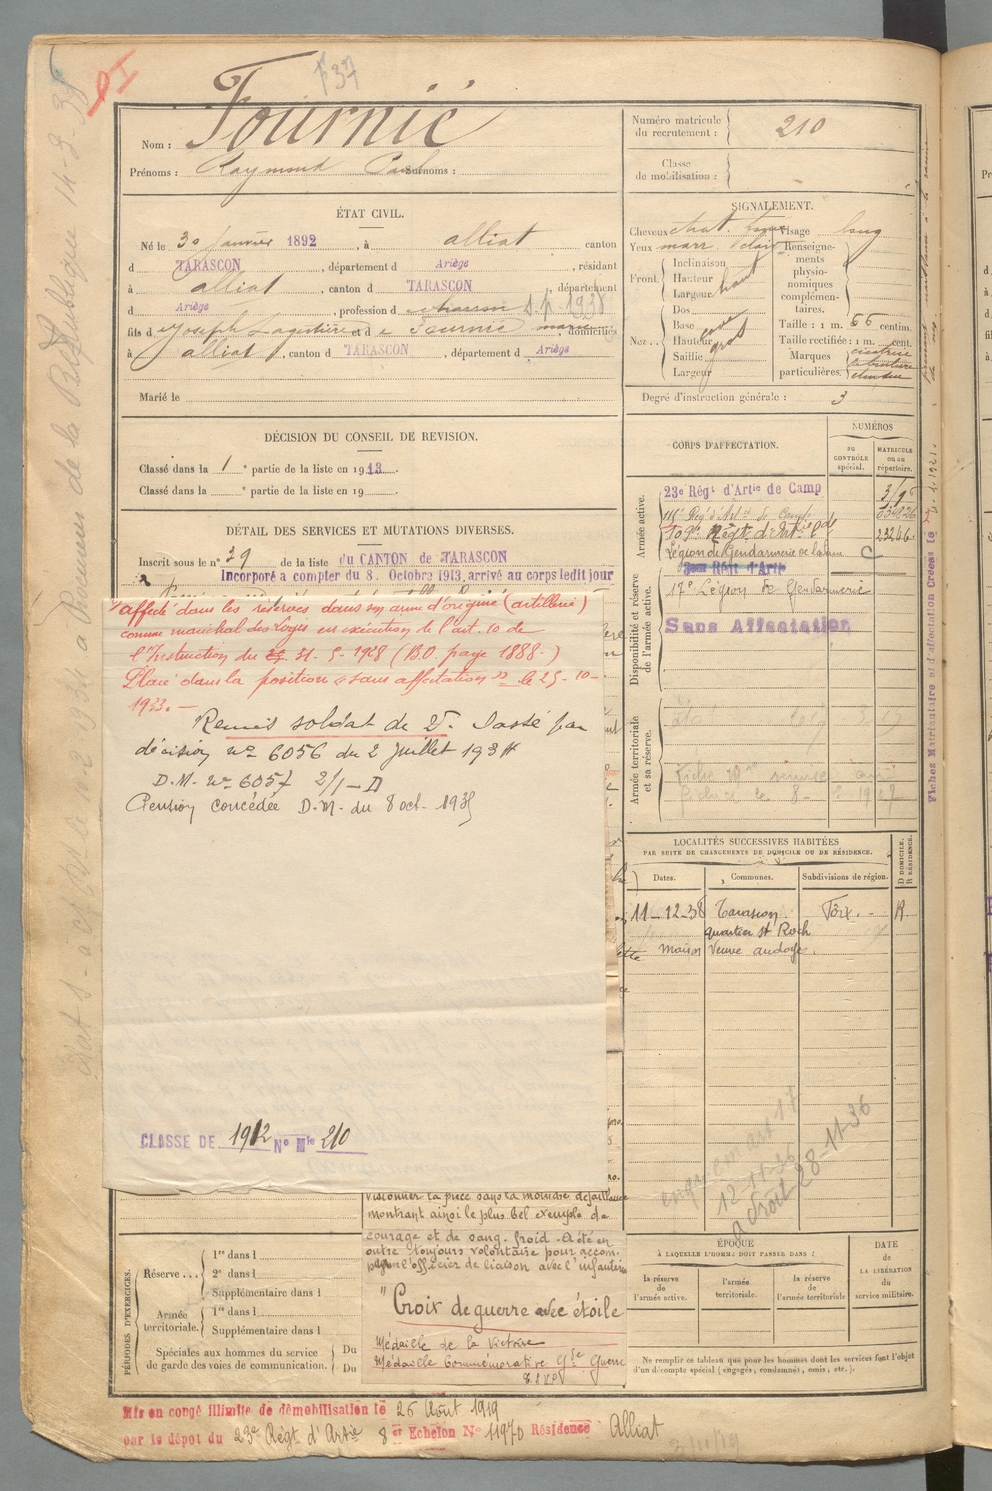 F37
Nom : Fournié
Prénoms : Raymond Surnoms :
ÉTAT CIVIL.
Né le 30 Janvier 1892, à alliat canton
d TARASCON, département d Ariège, résidant
à alliat, canton d TARASCON, département
d Ariège, profession d
fils d Joseph et d e Fournié domiciliés
à alliat, canton d TARASCON, département d Ariège
Marié le
DÉCISION DU CONSEIL DE REVISION.
Classé dans la 1 e partie de la liste en 1913.
Classé dans la e partie de la liste en 19
DÉTAIL DES SERVICES ET MUTATIONS DIVERSES.
Inscrit sous le n° 39 de la liste du CANTON de TARASCON
Incorporé à compter du 8 Octobre 1913, arrivé au corps ledit jour
affecté dans les réserves dans son arme d'origine (artillerie)
comme maréchal des Logis en exécution de l'art. 10 de
l'Instruction du 31-5-1928 (B.O. page 1888.)
Placé dans la position "sans affectation" le 25-10-
1933.-
Remis soldat de 2e. Passé par
décision no 6056 du 2 Juillet 1934
D.M. no 6057 2/1-D
Pension concédée D.M. du 8 oct. 1935
CLASSE DE 1912 No Mle 210
visionner la pièce sans la moindre défaillance
montrant ainsi le plus bel exemple de
courage et de sang froid. A été en
outre toujours volontaire pour accom-
l'officier de liaison avec l'infanterie
"Croix de guerre avec étoile
Médaille de la Victoire
Médaille Commémorative Gde Guerre
PÉRIODES D'EXERCICES.
Réserve...
1re dans l
2e dans l
Supplémentaire dans l
Armée territoriale.
1re dans l
Supplémentaire dans l
Spéciales aux hommes du service
de garde des voies de communication.
Du
Du
Mis en congé illimité de démobilisation le 26 Août 1919
par le dépôt du 23e Régt d'Artie 8 Echelon No 11970 Résidence Alliat
Numéro matricule
du recrutement : 210
Classe
de mobilisation :
SIGNALEMENT.
Cheveux chat. Visage long
Yeux marr. clair Renseigne-
ments
physio-
nomiques
complémen-
taires.
Front.
Inclinaison
Hauteur
Largeur haut
Nez...
Dos
Base cave
Hauteur
Saillie gros
Largeur
Taille : 1 m. 66 centim.
Taille rectifiée : 1 m. cent.
Marques
particulières.
Degré d'instruction générale : 3
CORPS D'AFFECTATION.
NUMÉROS
AU
CONTRÔLE
spécial.
MATRICULE
ou au
répertoire.
Armée active.
23e Régt d'Artie de Camp
109e Régt d'Artie Lde 23246
Légion de Gendarmerie
Disponibilité et réserve
de l'armée active.
17e Légion de Gendarmerie
Sans Affectation
Armée territoriale
et sa réserve.
Fiches Matriculaire et d'affectation Créées le
LOCALITÉS SUCCESSIVES HABITÉES
PAR SUITE DE CHANGEMENTS DE DOMICILE OU DE RÉSIDENCE.
Dates.
Communes.
Subdivisions de région.
D DOMICILE.
R RÉSIDENCE.
11-12-38 Tarascon Foix.- R.
quartier St Roch
maison Veuve
12-11-36
à droit 28-11-36
ÉPOQUE
À LAQUELLE L'HOMME DOIT PASSER DANS :
la réserve
de l'armée active.
l'armée
territoriale.
la réserve de
l'armée territoriale
DATE
de
LA LIBÉRATION
du
service militaire.
Ne remplir ce tableau que pour les hommes dont les services font l'objet
d'un décompte spécial (engagés, condamnés, omis, etc.).